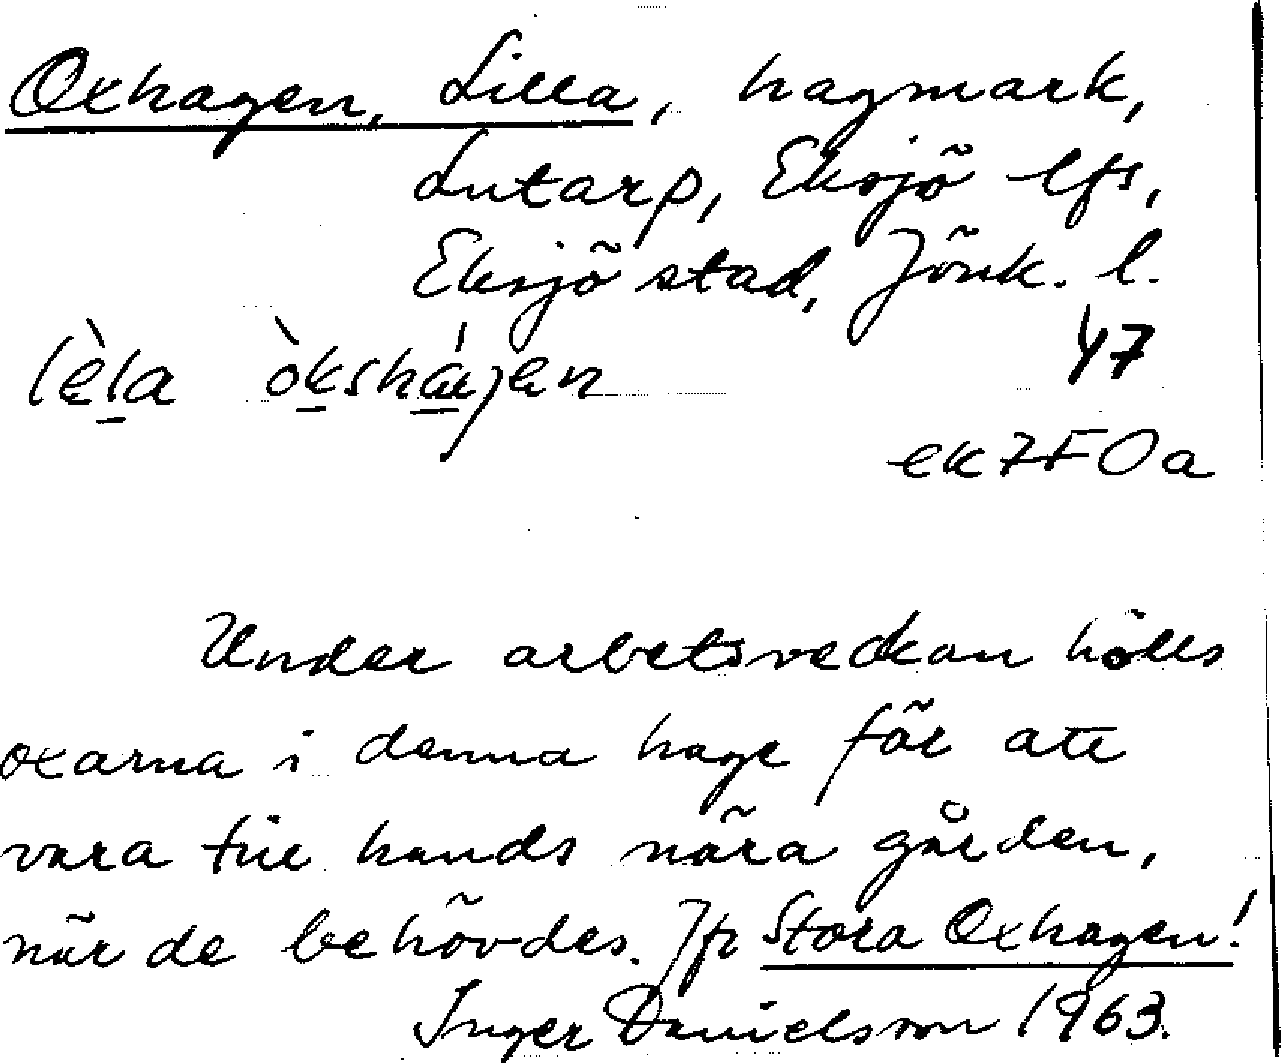 Oxhagen, Lilla, hagmark,
Lutarp, Eksjö lfs,
Eksjö stad, Jönk. l.
lèla òkshájen 47
ek7F0a
Under arbetsveckan hölls
oxarna i denna hage för att
vara till hands nära gården,
när de behövdes. Jfr Stora Oxhagen!
Inger Danielsson 1963.